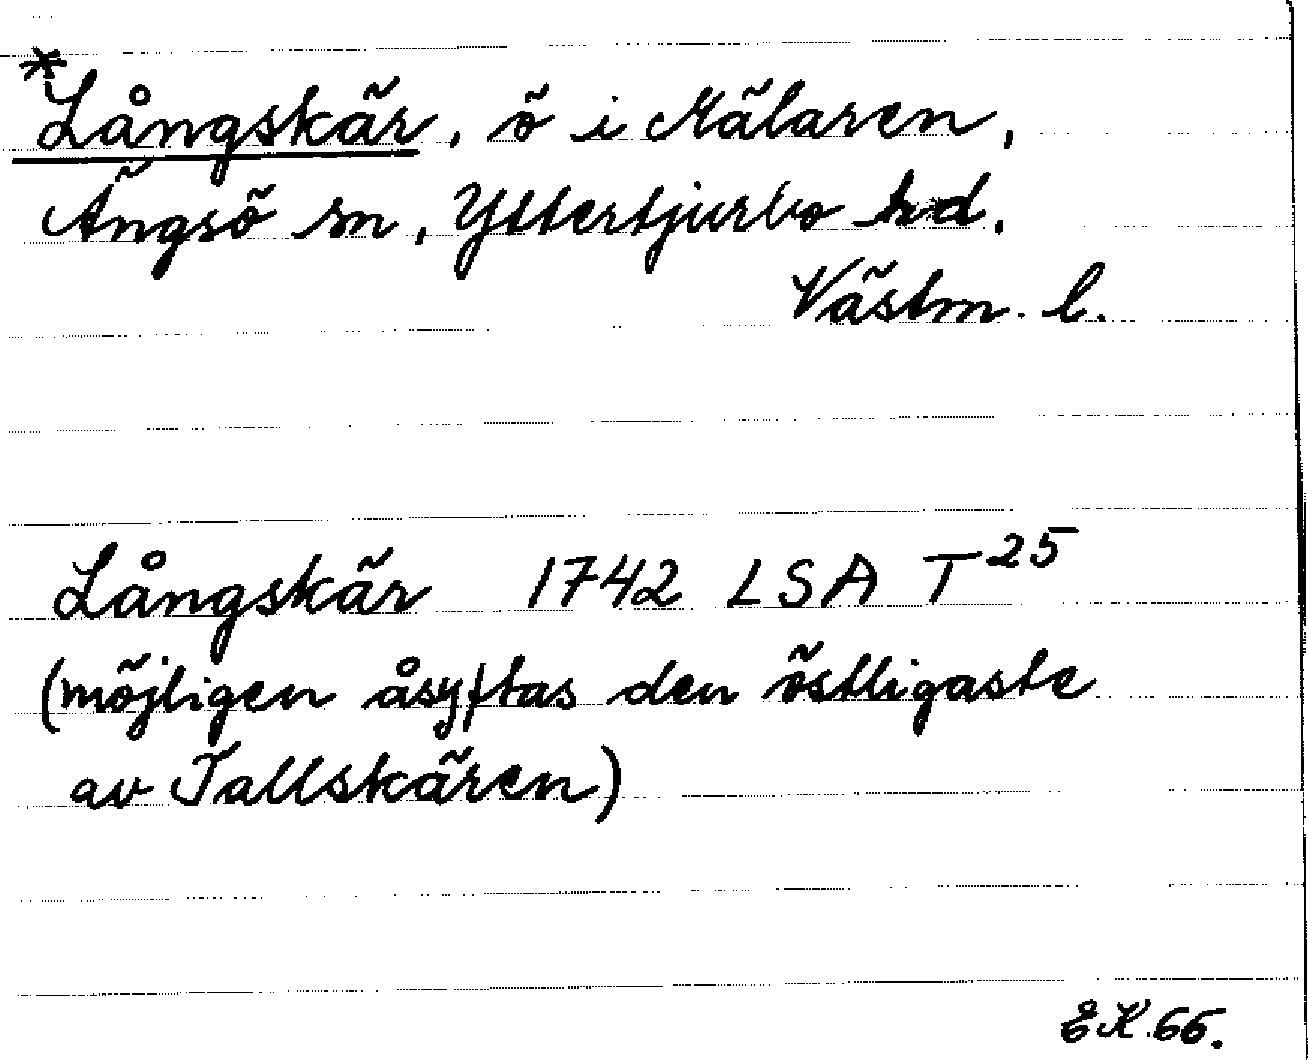 *Långskär, ö i Mälaren,
Ängsö sn, Yttertjurbo hd,
Västm. l.
Långskär 1742 LSA T²⁵
(möjligen åsyftas den östligaste
av Tallskären)
EK.66.